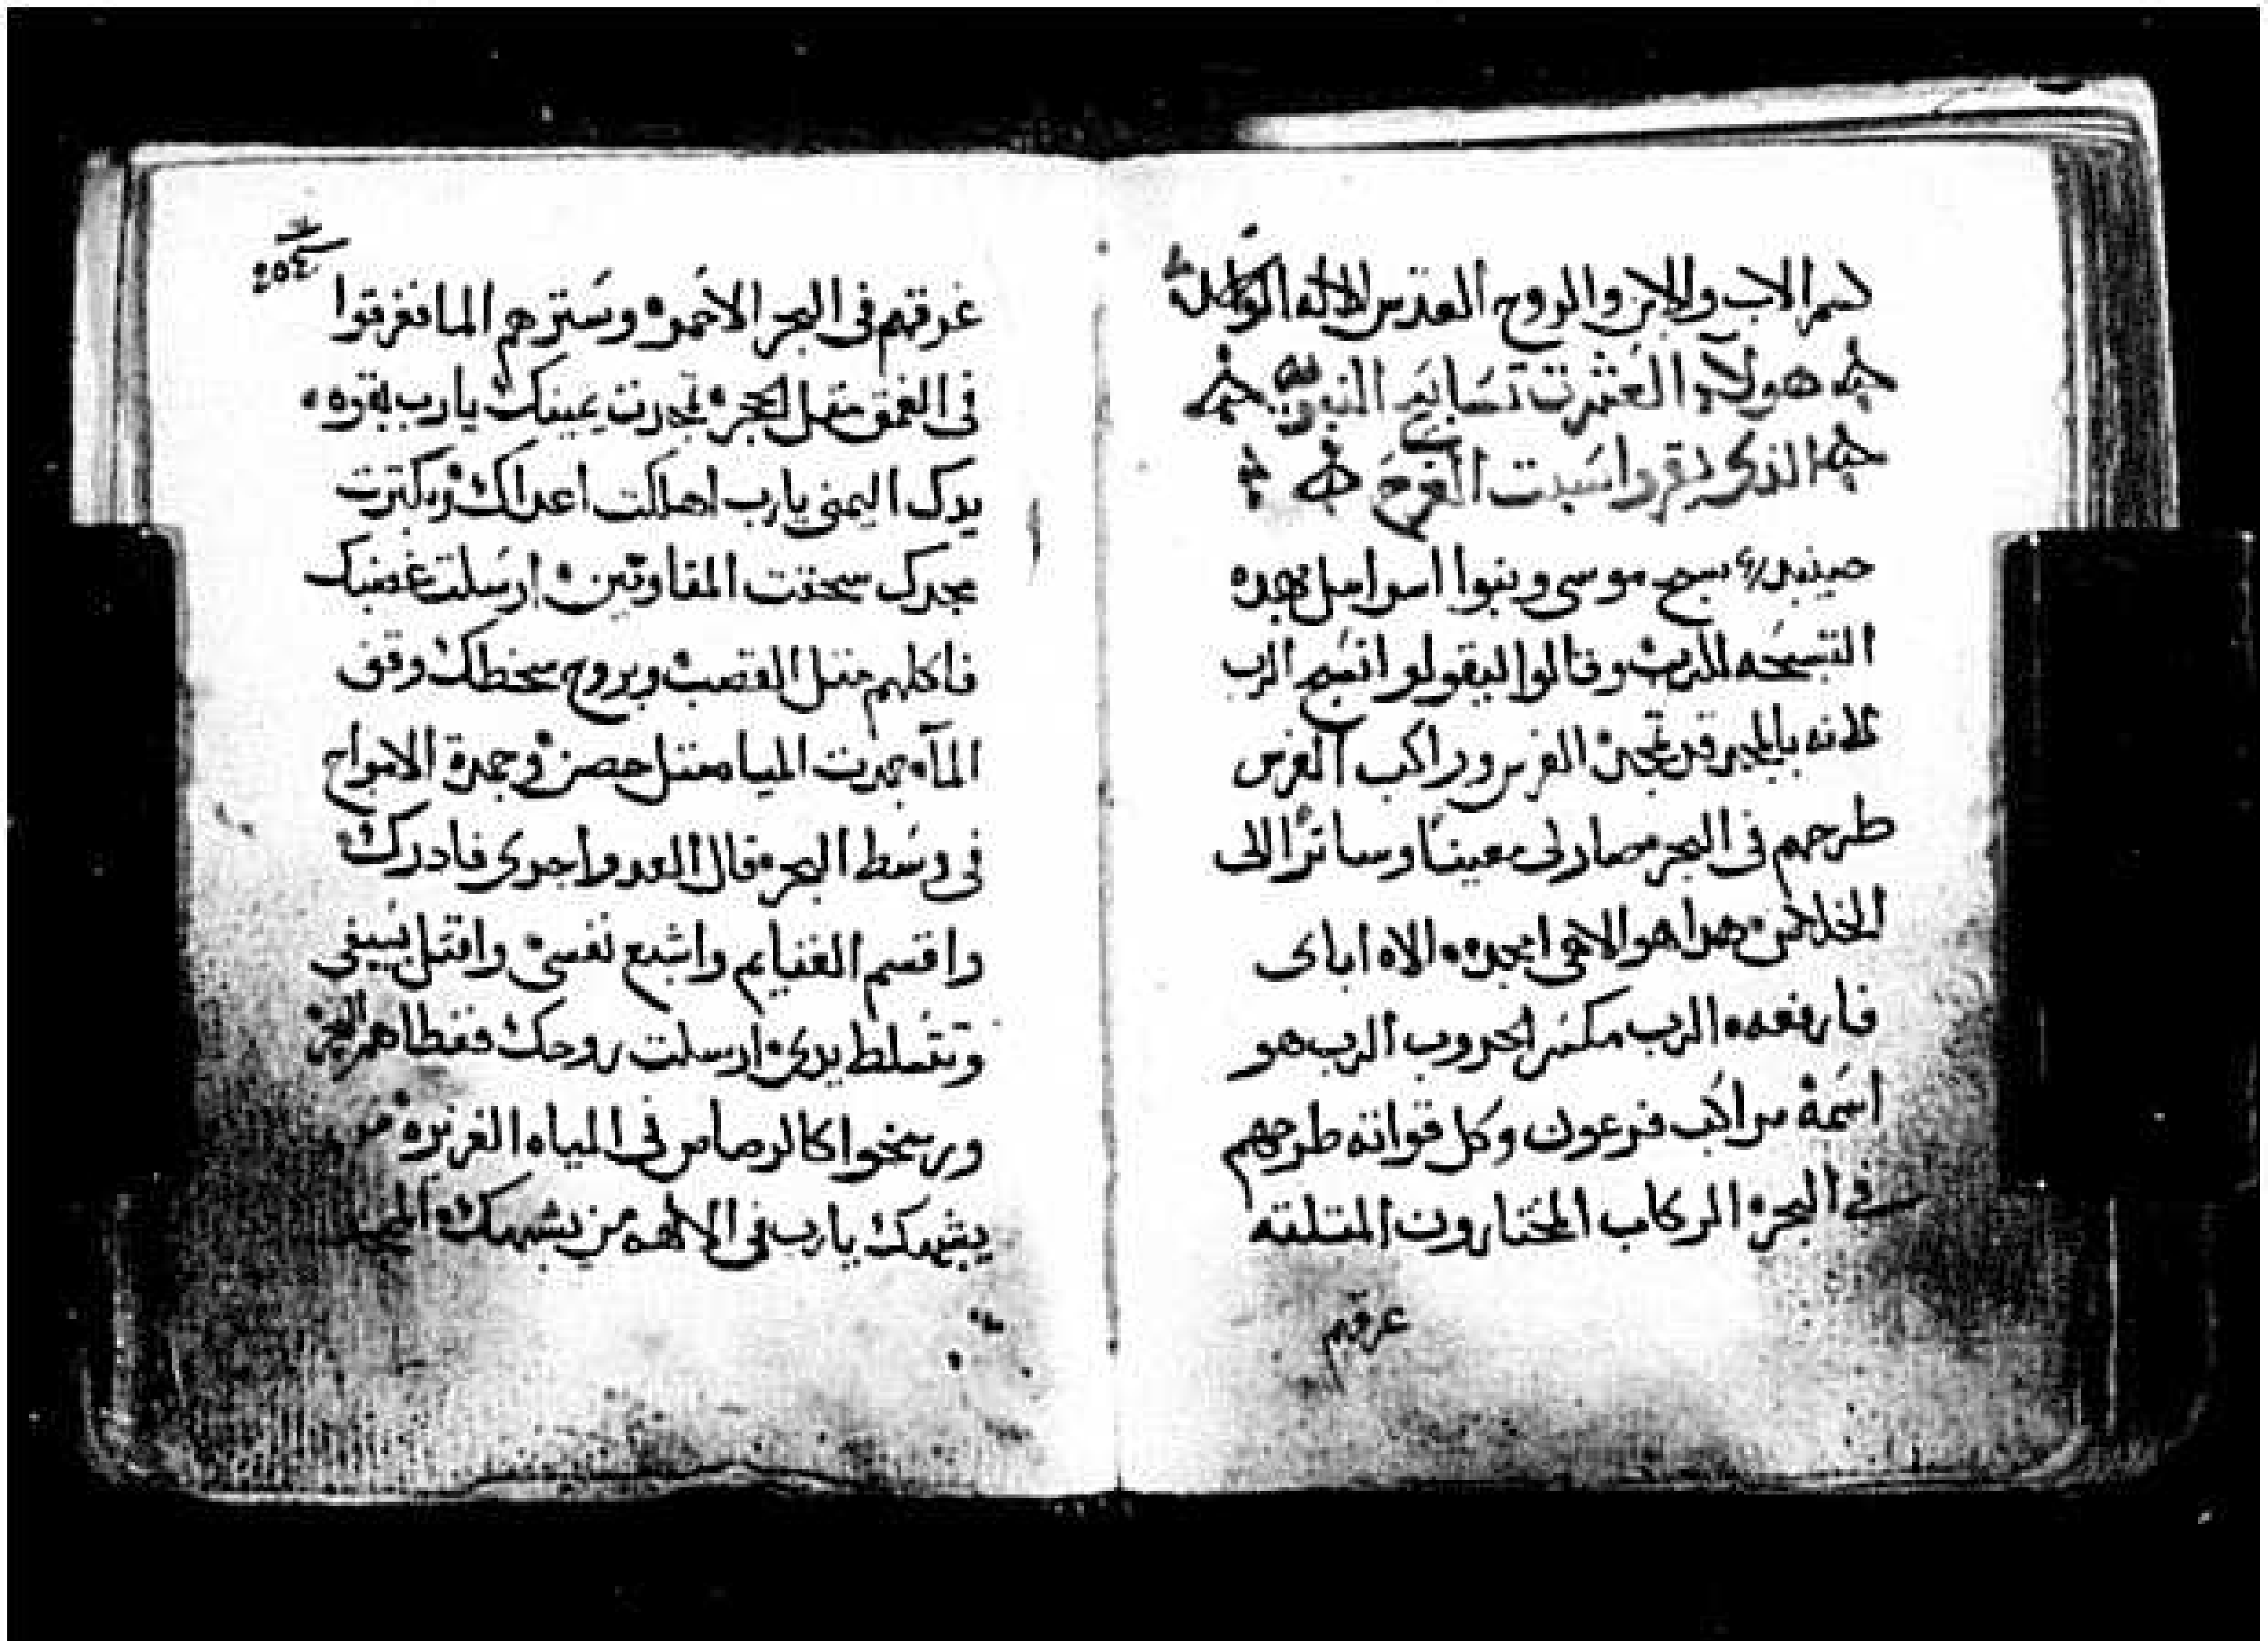 بسم الاب والابن والروح القدس الاله الواحد
هولاء العشرت تسابيح النبوه
الذي يقروا سبت الفرح
حينيد سبح موسى وبنوا اسراييل بهده
التسبحه للرب وقالوا ليقولوا نسبح الرب
لانه بالمجد قد تمجد الفرس وراكب الفرس
طرحهم فى البحر صار لى معينا وساترا الى
الخلاص هدا هو الاهى امجده الاه اباى
فارفعه الرب مكسر الحروب الرب هو
اسمه مراكب فرعون وكل قواته طرحهم
فى البحر الركاب المختارون المتلته
غرقهم
٢٥٤
غرقهم فى البحر الاحمر وسترهم الما فغرقوا
فى العمق متل الحجر تمجدت يمينك يارب بقوه
يدك اليمنى يارب اهلكت اعداك وبكترت
مجدك سحقت المقاومين ارسلت غضبك
فاكلهم متل القصب وبروح سخطك وقف
الماء جمدت المياه متل حصن وجمدة الامواج
فى وسط البحر قال العدو اجرى فادرك
واقسم الغنايم واشبع نفسى واقتل بسيفى
وتتسلط يدى ارسلت روحك فغطاهم البحر
ورسخوا كالرصاص فى المياه الغزيره من
يشبهك يارب فى الالهه من يشبهك الممجد